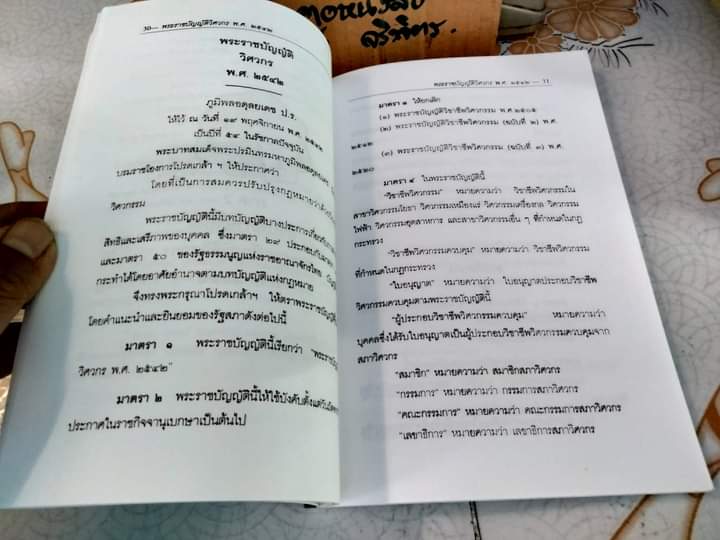 จริพัตร.
30— พระราชบัญญัติวิศวกร พ.ศ. ๒๕๔๒
พระราชบัญญัติ
วิศวกร
พ.ศ. ๒๕๔๒
ภูมิพลอดุลยเดช ป.ร.
ให้ไว้ ณ วันที่ ๑๙ พฤศจิกายน พ.ศ. ๒๕๔๒
เป็นปีที่ ๕๔ ในรัชกาลปัจจุบัน
พระบาทสมเด็จพระปรมินทรมหาภูมิพลอดุลยเดช
บรมราชโองการโปรดเกล้า ฯ ให้ประกาศว่า
โดยที่เป็นการสมควรปรับปรุงกฎหมายว่าด้วย
วิศวกรรม
พระราชบัญญัตินี้มีบทบัญญัติบางประการเกี่ยวกับ
สิทธิและเสรีภาพของบุคคล ซึ่งมาตรา ๒๙ ประกอบกับ
และมาตรา ๕๐ ของรัฐธรรมนูญแห่งราชอาณาจักรไทย
กระทำได้โดยอาศัยอำนาจตามบทบัญญัติแห่งกฎหมาย
จึงทรงพระกรุณาโปรดเกล้าฯ ให้ตราพระราชบัญญัติ
โดยคำแนะนำและยินยอมของรัฐสภาดังต่อไปนี้
มาตรา ๑ พระราชบัญญัตินี้เรียกว่า "พระราชบัญ
วิศวกร พ.ศ. ๒๕๔๒"
มาตรา ๒ พระราชบัญญัตินี้ให้ใช้บังคับตั้งแต่วัน
ประกาศในราชกิจจานุเบกษาเป็นต้นไป
พระราชบัญญัติวิศวกร พ.ศ. ๒๕๔๒ — 31
มาตรา ๓ ให้ยกเลิก
(๑) พระราชบัญญัติวิชาชีพวิศวกรรม พ.ศ.๒๕๐๕
(๒) พระราชบัญญัติวิชาชีพวิศวกรรม (ฉบับที่ ๒) พ.ศ.
๒๕๑๒
(๓) พระราชบัญญัติวิชาชีพวิศวกรรม (ฉบับที่ ๓) พ.ศ.
๒๕๒๐
มาตรา ๔ ในพระราชบัญญัตินี้
"วิชาชีพวิศวกรรม" หมายความว่า วิชาชีพวิศวกรรมใน
สาขาวิศวกรรมโยธา วิศวกรรมเหมืองแร่ วิศวกรรมเครื่องกล วิศวกรรม
ไฟฟ้า วิศวกรรมอุตสาหการ และสาขาวิศวกรรมอื่น ๆ ที่กำหนดในกฎ
กระทรวง
"วิชาชีพวิศวกรรมควบคุม" หมายความว่า วิชาชีพวิศวกรรม
ที่กำหนดในกฎกระทรวง
"ใบอนุญาต" หมายความว่า ใบอนุญาตประกอบวิชาชีพ
วิศวกรรมควบคุมตามพระราชบัญญัตินี้
"ผู้ประกอบวิชาชีพวิศวกรรมควบคุม" หมายความว่า
บุคคลซึ่งได้รับใบอนุญาตเป็นผู้ประกอบวิชาชีพวิศวกรรมควบคุมจาก
สภาวิศวกร
"สมาชิก" หมายความว่า สมาชิกสภาวิศวกร
"กรรมการ" หมายความว่า กรรมการสภาวิศวกร
"คณะกรรมการ" หมายความว่า คณะกรรมการสภาวิศวกร
"เลขาธิการ" หมายความว่า เลขาธิการสภาวิศวกร